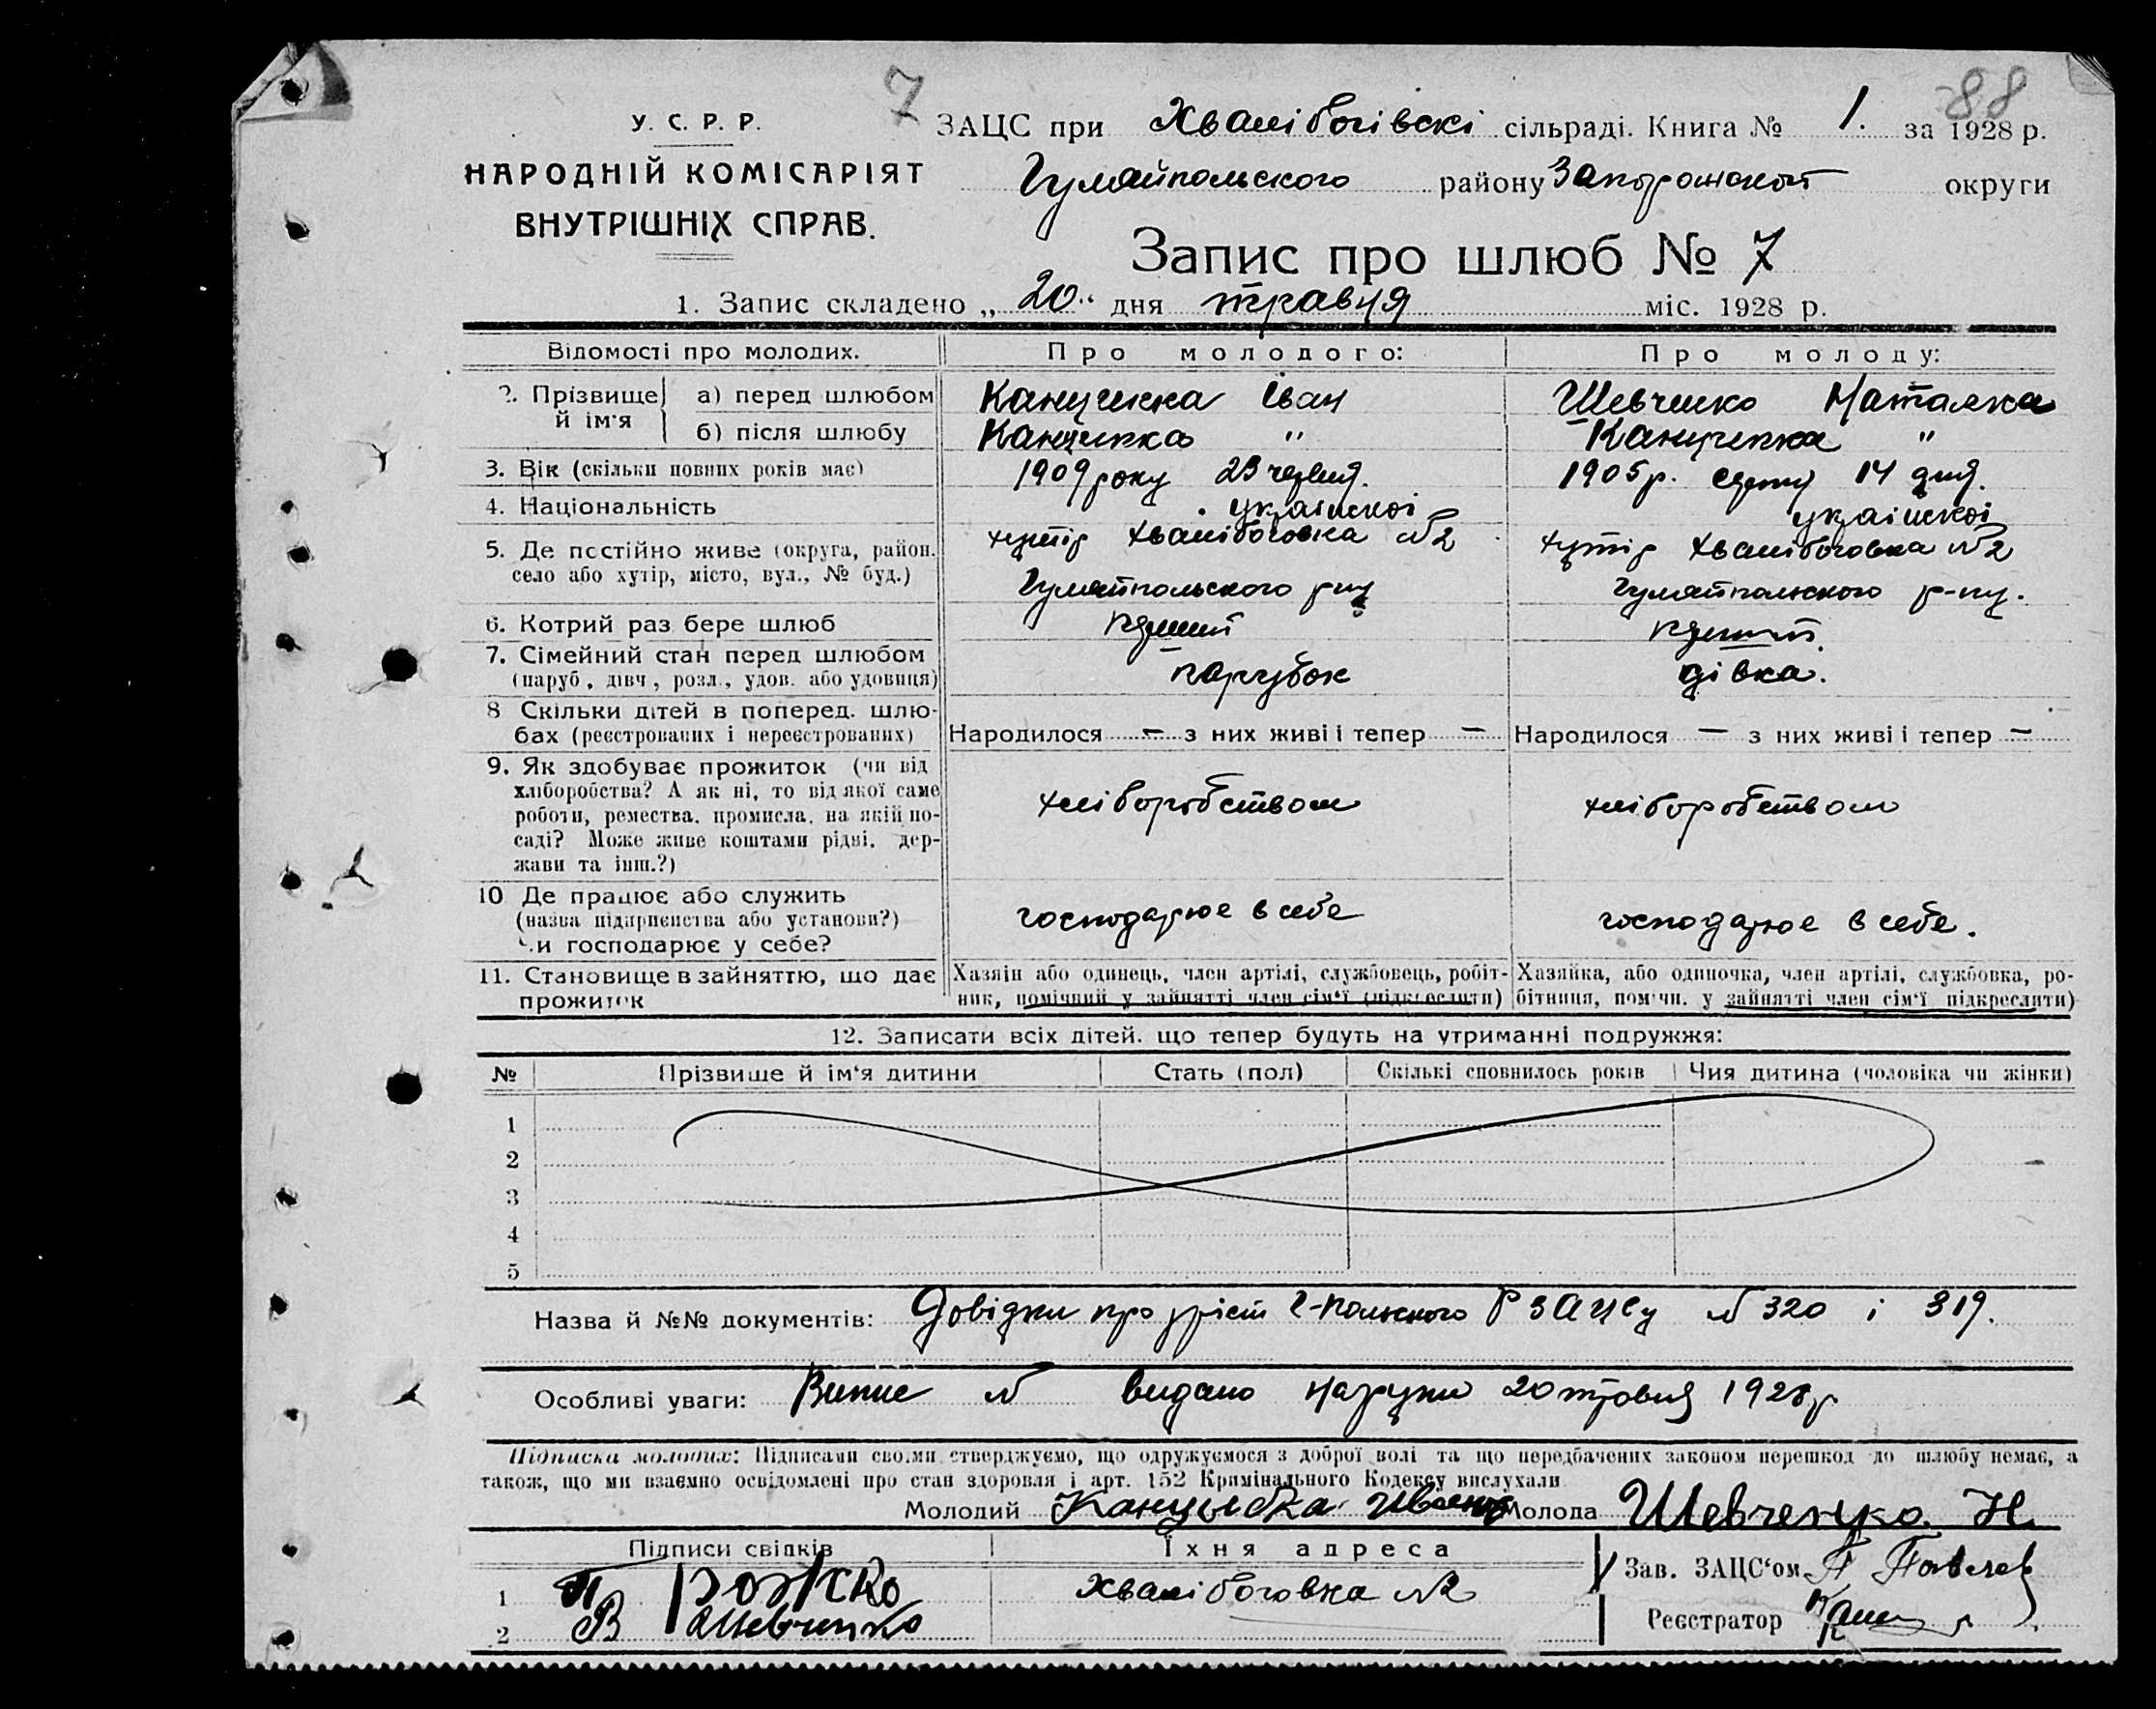 7
88
У. С. Р. Р.
НАРОДНІЙ КОМІСАРІЯТ
ВНУТРІШНІХ СПРАВ.
ЗАЦС при Хвалібогівскі сільраді. Книга № 1. за 1928 р.
Гуляйпольского району Запорожской округи
Запис про шлюб № 7
1. Запис складено „ 20 " дня травня міс. 1928 р.
Відомості про молодих.
Про молодого:
Про молоду:
2. Прізвище й ім'я
а) перед шлюбом
Іван
Шевченко Наталка
б) після шлюбу
"
"
3. Вік (скільки повних років має)
1909 року 23 червня.
1905 р. серпня 14 дня.
4. Національність
української
української
5. Де постійно живе (округа, район,
село або хутір, місто, вул., № буд.)
хутір Хвалібоговка №2
Гуляйпольского р-ну
хутір Хвалібоговка №2
Гуляйпольского р-ну.
6. Котрий раз бере шлюб
перший
перший
7. Сімейний стан перед шлюбом
(паруб., дівч., розл., удов. або удовиця)
парубок
дівка.
8 Скільки дітей в поперед. шлю-
бах (реєстрованих і нереєстрованих)
Народилося — з них живі і тепер —
Народилося — з них живі і тепер —
9. Як здобуває прожиток (чи від
хліборобства? А як ні, то від якої саме
роботи, ремества, промисла, на якій по-
саді? Може живе коштами рідні, дер-
жави та інш.?)
хліборобством
хліборобством
10 Де працює або служить
(назва підприємства або установи?)
Чи господарює у себе?
господарює в себе
господарює в себе.
11. Становище в зайняттю, що дає
прожиток
Хазяїн або одинець, член артілі, службовець, робіт-
ник, помічний у зайнятті член сім'ї (підкреслити)
Хазяйка, або одиночка, член артілі, службовка, ро-
бітниця, помічн. у зайнятті член сім'ї підкреслити)
12. Записати всіх дітей, що тепер будуть на утриманні подружжя:
№
Прізвище й ім'я дитини
Стать (пол)
Скількі сповнилось років
Чия дитина (чоловіка чи жінки)
1
2
3
4
5
Назва й №№ документів: Довідки про зріст Г-польского РЗАЦСу № 320 і 319.
Особливі уваги: Випис № видано на руки 20 травня 1928 р
Підписка молодих: Підписами своїми стверджуємо, що одружуємося з доброї волі та що передбачених законом перешкод до шлюбу немає, а
також, що ми взаємно освідомлені про стан здоровля і арт. 152 Кримінального Кодексу вислухали
Молодий
Молода Шевченко Н.
Підписи свідків
Їхня адреса
1
Хвалібоговка №2
2 В Шевченко
Зав. ЗАЦС'ом
Реєстратор